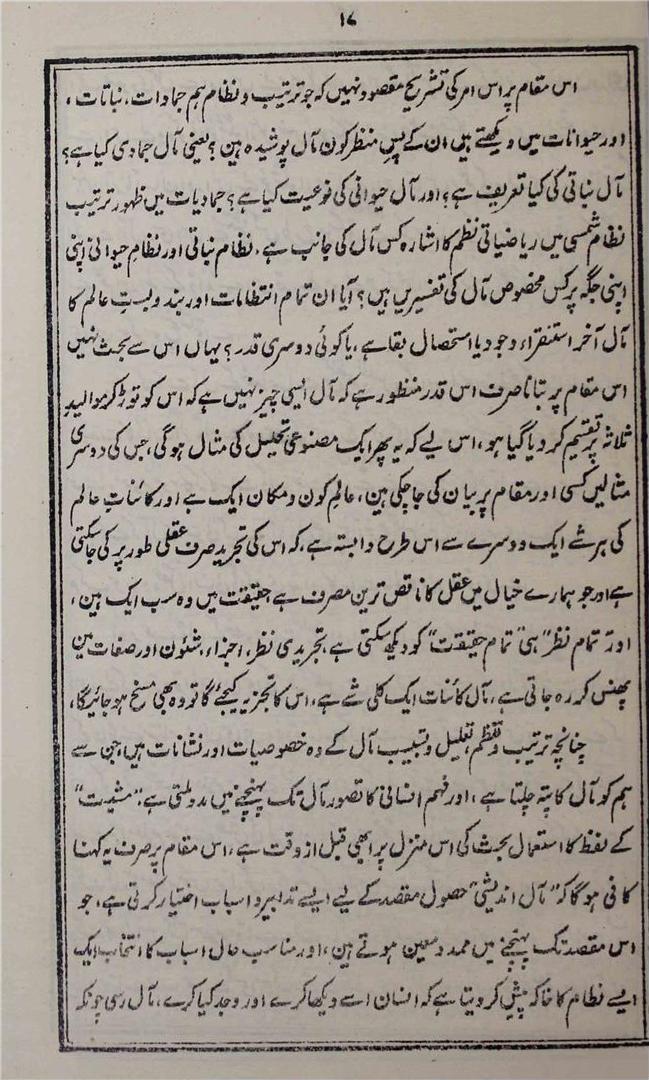 ۱۷
اس مقام پر اس امر کی تشریح مقصود نہیں کہ جو ترتیب و نظام ہم جمادات، نباتات،
اور حیوانات میں دیکھتے ہیں ان کے پس منظر کون مآل پوشیدہ ہین؟ یعنی مآل جمادی کیا ہے؟
مآل نباتی کی کیا تعریف ہے؟ اور مآل حیوانی کی نوعیت کیا ہے؟ جمادیات میں ظہور ترتیب
نظام شمسی میں ریاضیاتی نظم کا اشارہ کس مآل کی جانب ہے۔ نظام نباتی اور نظام حیوانی اپنی
اپنی جگہ پر کس مخصوص مآل کی تفسیریں ہیں؟ آیا ان تمام انتظامات اور بند و بستِ عالم کا
مآل آخر استقراء وجود یا استحصال بقا ہے، یا کوئی دوسری قدر؟ یہاں اس سے بحث نہیں
اس مقام پر بتانا صرف اس قدر منظور ہے کہ مآل ایسی چیز نہیں ہے کہ اس کو توڑ کر موالیدِ
ثلاثہ پر تقسیم کر دیا گیا ہو، اس لیے کہ یہ پھر ایک مصنوعی تحلیل کی مثال ہوگی، جس کی دوسری
مثالیں کسی اور مقام پر بیان کی جا چکی ہین، عالم کون و مکان ایک ہے اور کائنات عالم
کی ہر شے ایک دوسرے سے اس طرح وابستہ ہے، کہ اس کی تجرید صرف عقلی طور پر کی جا سکتی
ہے اور جو ہمارے خیال میں عقل کا ناقص ترین مصرف ہے حقیقت میں وہ سب ایک ہین،
اور "تمام نظر" ہی "تمام حقیقت" کو دیکھ سکتی ہے، تجریدی نظر، اجزاء، شئون اور صفات مین
پھنس کر رہ جاتی ہے، مآل کائنات ایک کلی شے ہے، اس کا تجزیہ کیجئے گا تو وہ بھی مسخ ہو جائیگا،
چنانچہ ترتیب و تنظم، تعلیل و تسبیب مآل کے وہ خصوصیات اور نشانات ہیں، جن سے
ہم کو مآل کا پتہ چلتا ہے، اور فہم انسانی کا تصور مآل تک پہنچنے میں مدد ملتی ہے: "مشیت"
کے لفظ کا استعمال بحث کی اس منزل پر ابھی قبل از وقت ہے، اس مقام پر صرف یہ کہنا
کافی ہو گا کہ "مآل اندیشی" حصول مقصد کے لیے ایسے تدابیر و اسباب اختیار کرتی ہے، جو
اس مقصد تک پہنچنے میں ممد و معین ہوتے ہین، اور مناسب حال اسباب کا انتخاب ایک
ایسے نظام کا خاکہ پیش کر دیتا ہے کہ انسان اسے دیکھا کرے اور وجد کیا کرے، مآل رسی چونکہ